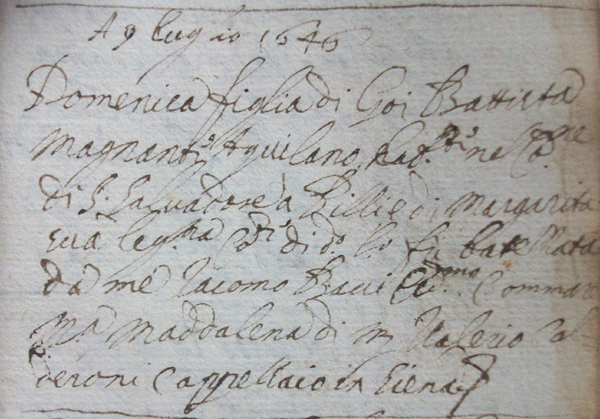 A 9 luglio 1646
Domenica figlia di Gio: Battista
Magnanti Aquilano hab.te nel Co.ne
di S. Salvadore a Pilli e di Margarita
sua leg.ma di d.o fu batezzata
da me Iacomo Bacci Commare
M.a Maddalena di m. Valerio Cal-
deroni Cappellaio in Siena